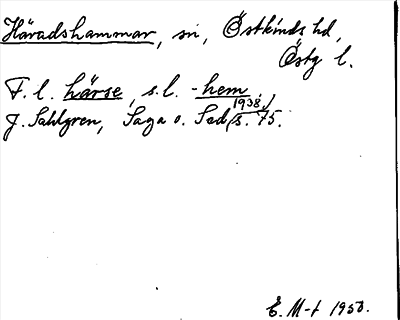 Häradshammar, sn, Östkinds hd,
Östg l.
F. l. härse, s.l. -hem
J. Sahlgren, Saga o. Sed (1938) s. 75.
E. M-t 1950.